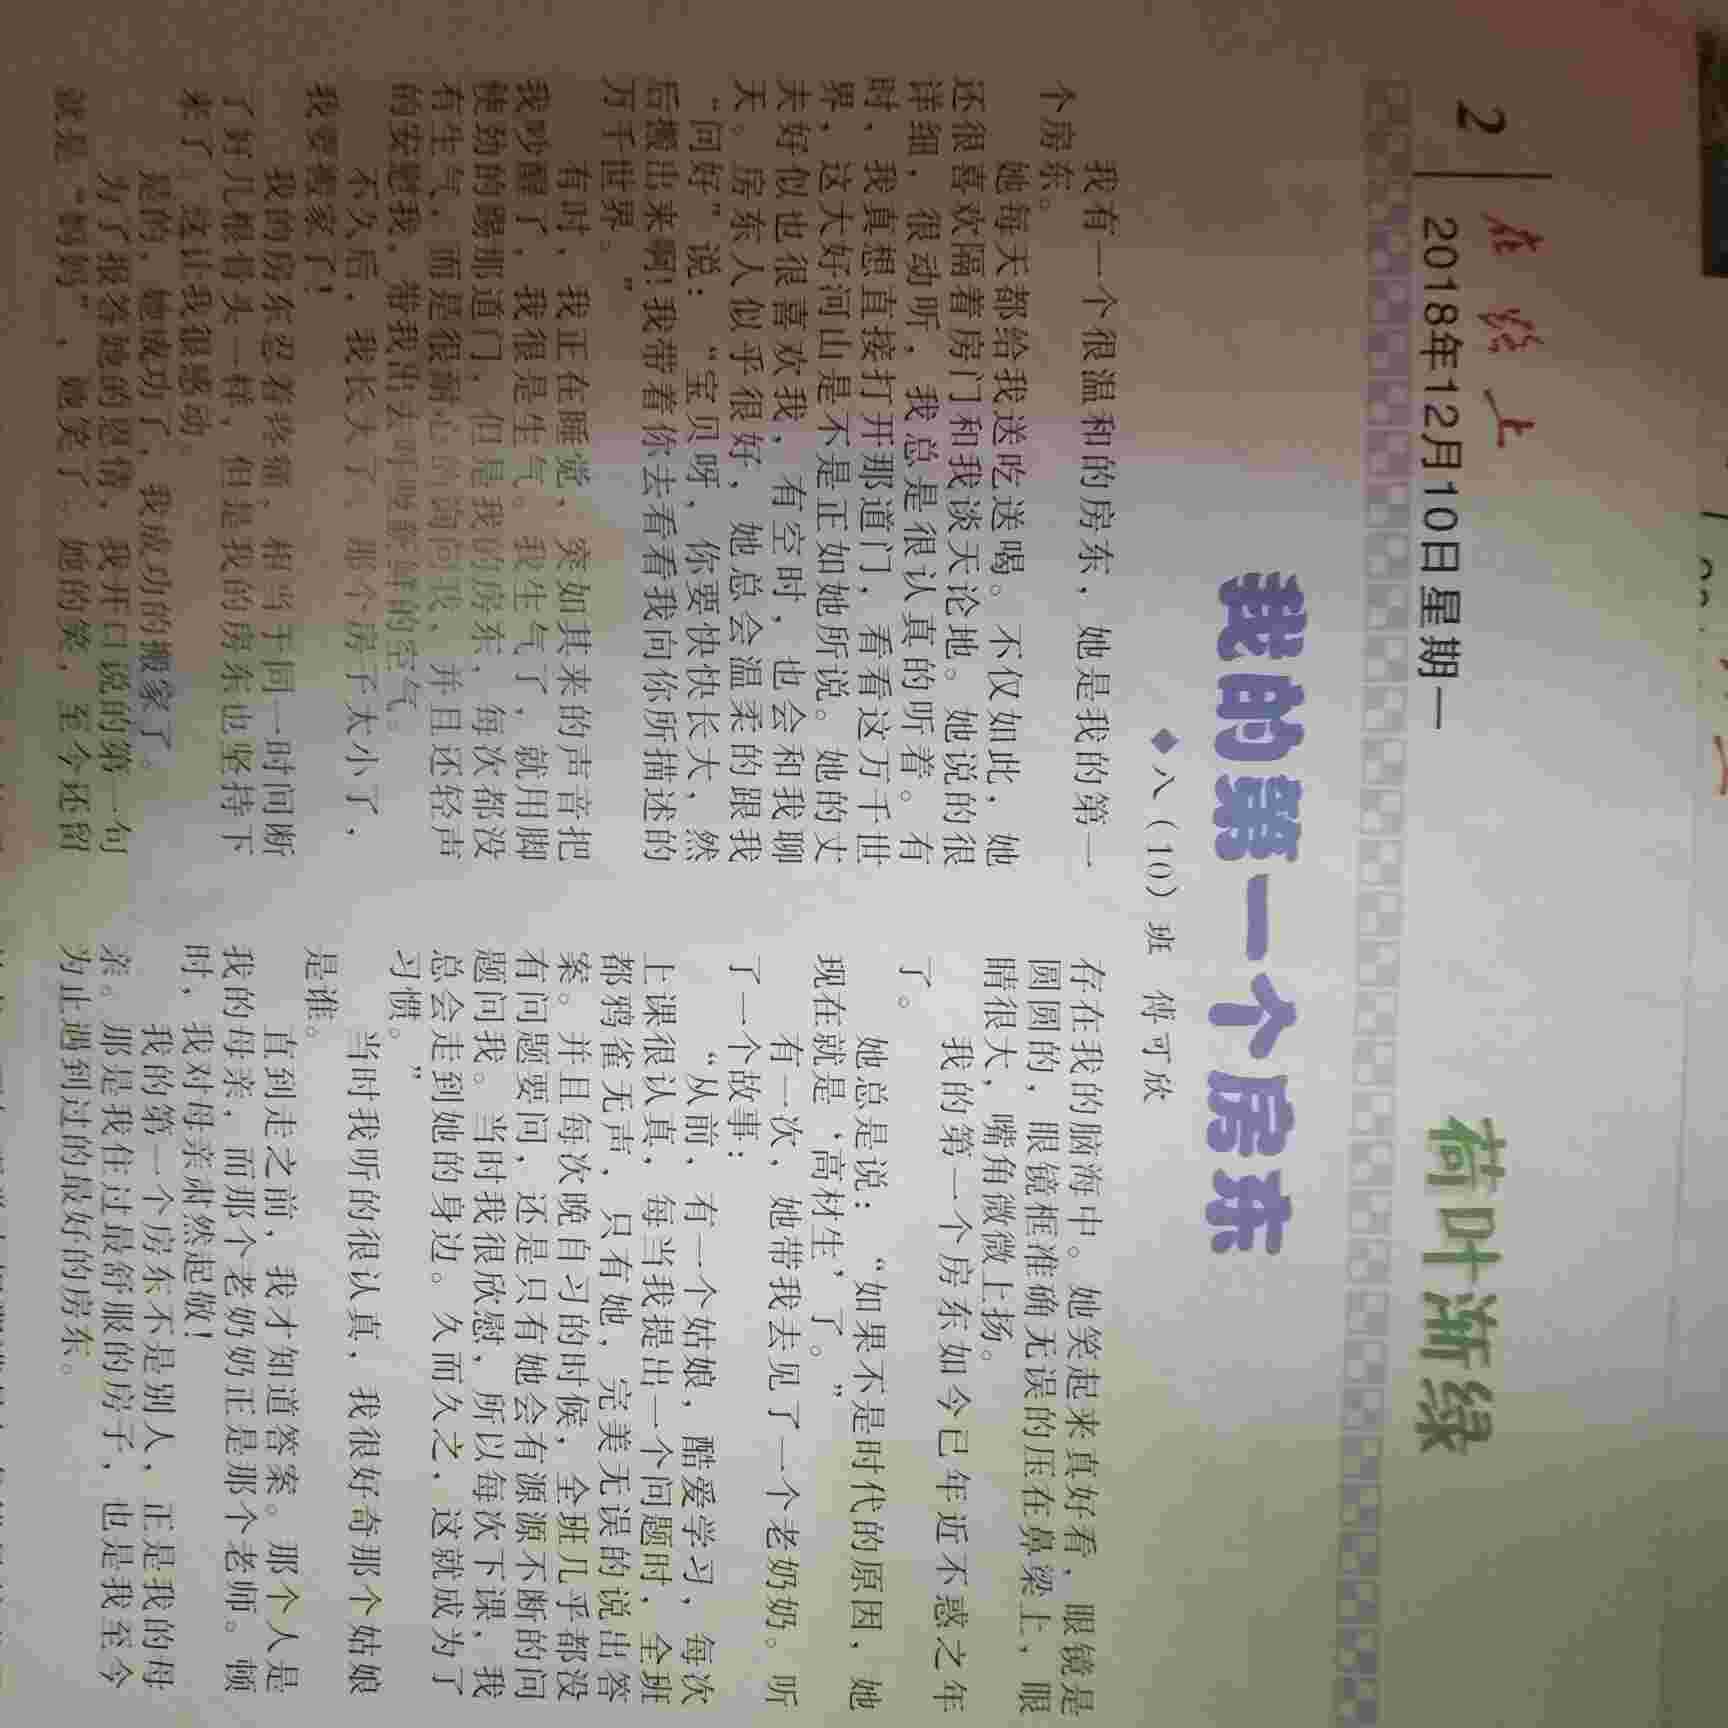 2
2018年12月10日星期一
荷叶渐绿
我的第一个房东
◆八（10）班 傅可欣
我有一个很温和的房东，她是我的第一
个房东。
她每天都给我送吃送喝。不仅如此，她
还很喜欢隔着房门和我谈天论地。她说的很
详细，很动听，我总是很认真的听着。有
时，我真想直接打开那道门，看看这万千世
界，这大好河山是不是正如她所说。她的丈
夫好似也很喜欢我，有空时，也会和我聊
天。房东人似乎很好，她总会温柔的跟我
“问好”说：“宝贝呀，你要快快长大，然
后搬出来啊!我带着你去看看我向你所描述的
万千世界。”
有时，我正在睡觉，突如其来的声音把
我吵醒了，我很是生气。我生气了，就用脚
使劲的踢那道门，但是我的房东，每次都没
有生气，而是很耐心的询问我，并且还轻声
的安慰我，带我出去呼吸新鲜的空气。
不久后，我长大了。那个房子太小了，
我要搬家了!
我的房东忍着疼痛，相当于同一时间断
了好几根骨头一样，但是我的房东也坚持下
来了。这让我很感动。
是的，她成功了，我成功的搬家了。
为了报答她的恩情，我开口说的第一句
就是“妈妈”，她笑了。她的笑，至今还留
存在我的脑海中。她笑起来真好看，眼镜是
圆圆的，眼镜框准确无误的压在鼻梁上，眼
睛很大，嘴角微微上扬。
我的第一个房东如今已年近不惑之年
了。
她总是说：“如果不是时代的原因，她
现在就是‘高材生’了。”
有一次，她带我去见了一个老奶奶。听
了一个故事：
“从前，有一个姑娘，酷爱学习，每次
上课很认真，每当我提出一个问题时，全班
都鸦雀无声，只有她，完美无误的说出答
案。并且每次晚自习的时候，全班几乎都没
有问题要问，还是只有她会有源源不断的问
题问我。当时我很欣慰，所以每次下课，我
总会走到她的身边。久而久之，这就成为了
习惯。”
当时我听的很认真，我很好奇那个姑娘
是谁。
直到走之前，我才知道答案。那个人是
我的母亲，而那个老奶奶正是那个老师。顿
时，我对母亲肃然起敬!
我的第一个房东不是别人，正是我的母
亲。那是我住过最舒服的房子，也是我至今
为止遇到过的最好的房东。